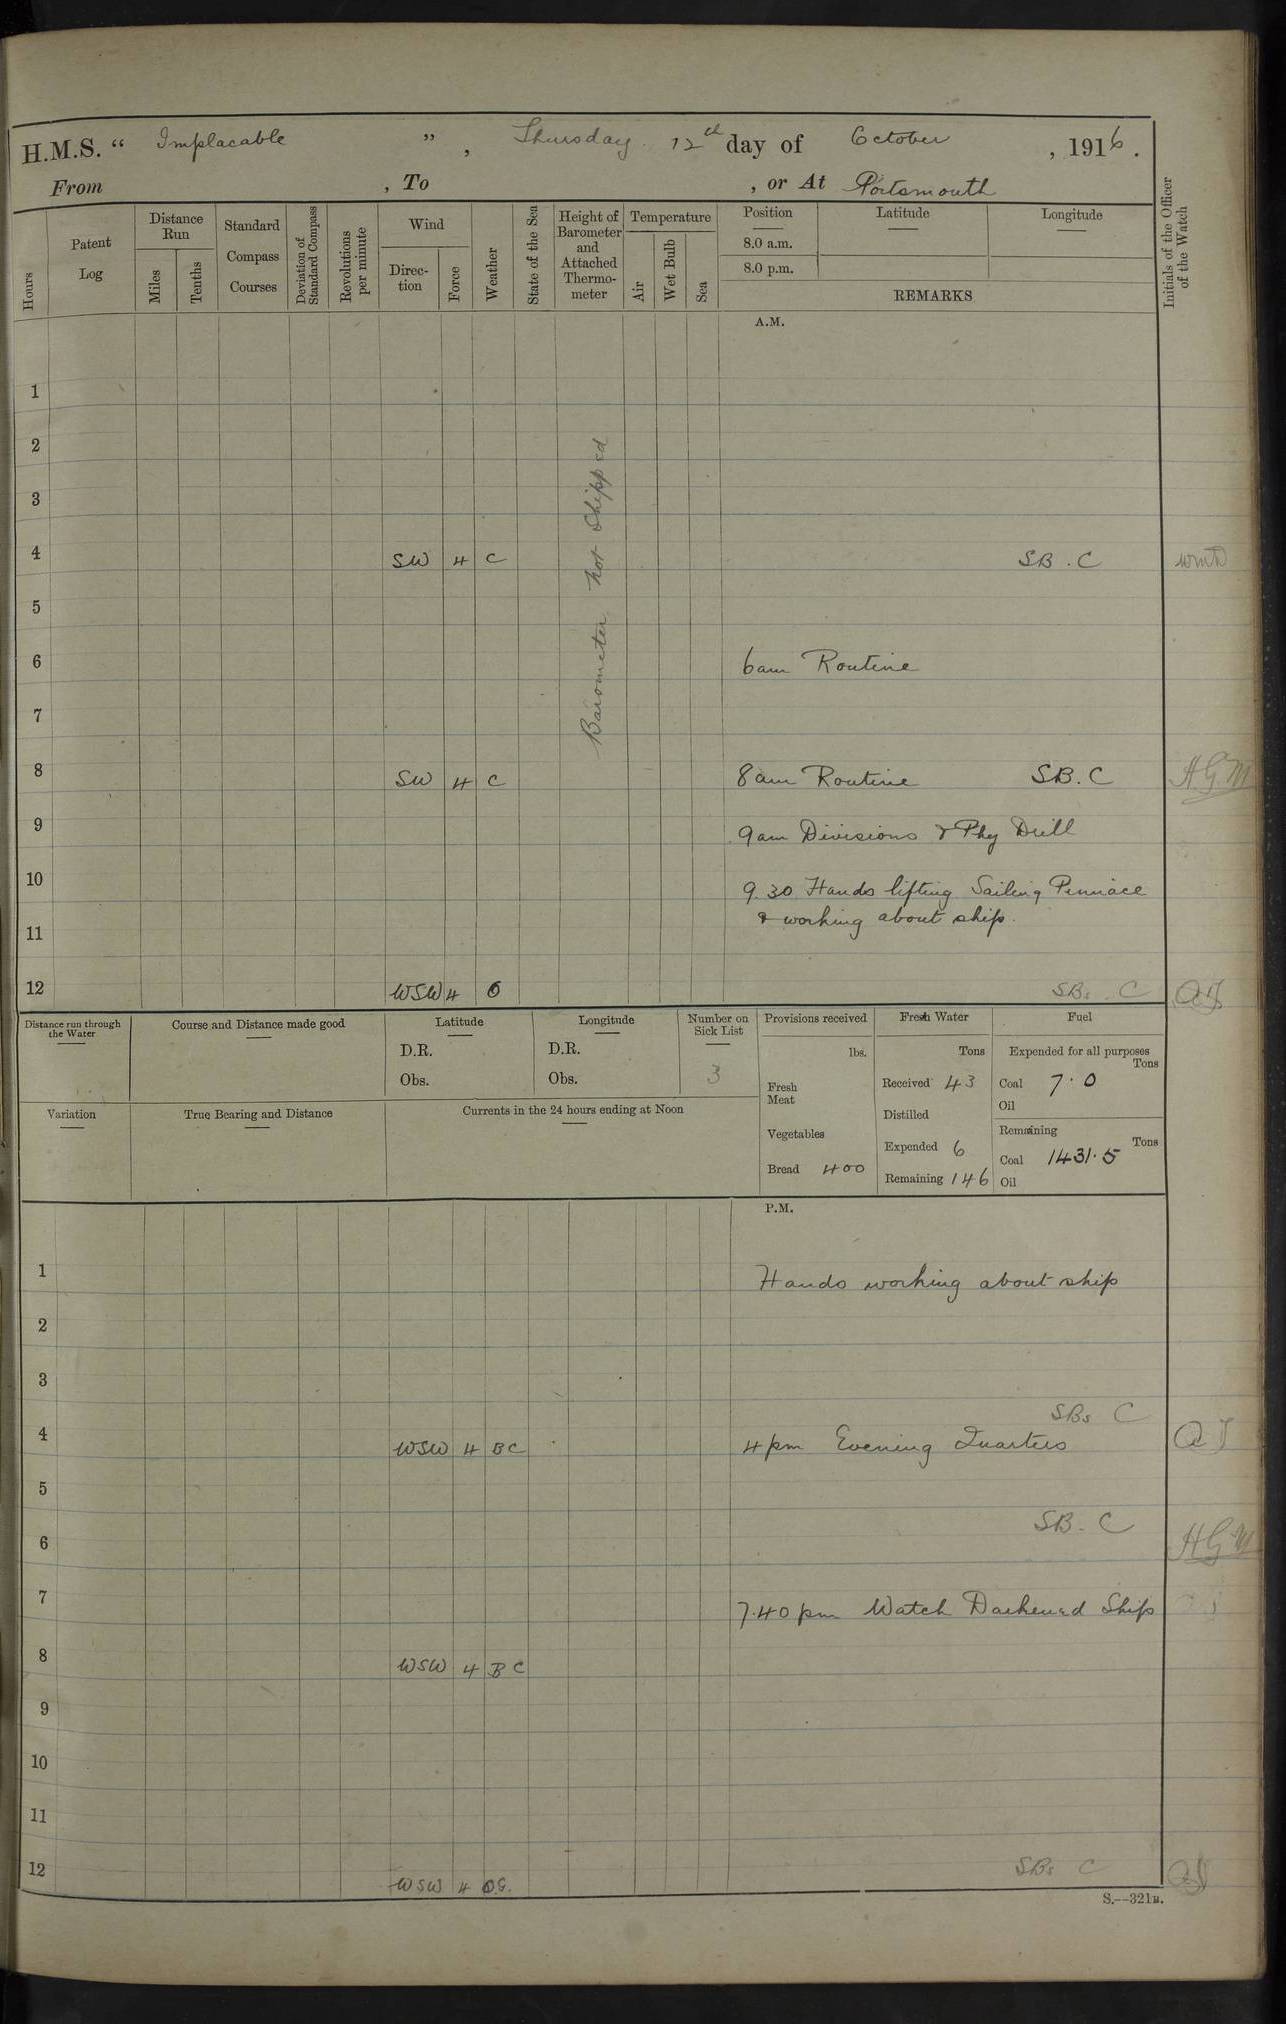 H.M.S. “ Implacable ” , Thursday 12th day of October , 1916 .
From , To , or At Portsmouth
Hours
Patent Log
Distance Run
Miles
Tenths
Standard Compass Courses
Deviation of Standard Compass
Revolutions per minute
Wind
Direc-tion
Force
Weather
State of the Sea
Height of Barometer and Attached Thermo-meter
Temperature
Air
Wet Bulb
Sea
Position
8.0 a.m.
8.0 p.m.
Latitude
Longitude
REMARKS
Initials of the Officer of the Watch
A.M.
Barometer not shipped
1
2
3
4 SW 4 C SB . C
5
6 6am Routine
7
8 SW 4 C 8am Routine SB. C H.G.M
9 9am Divisions & Phy Drill
10 9.30 Hands lifting Sailing Pinnace
& working about ship.
11
12 WSW 4 O SBs. C
Distance run through the Water
Course and Distance made good
Latitude
D.R.
Obs.
Longitude
D.R.
Obs.
Number on Sick List
3
Provisions received
lbs.
Fresh Meat
Vegetables
Bread 400
Fresh Water
Tons
Received 43
Distilled
Expended 6
Remaining 146
Fuel
Expended for all purposes
Tons
Coal 7.0
Oil
Remaining
Tons
Coal 1431.5
Oil
Variation
True Bearing and Distance
Currents in the 24 hours ending at Noon
P.M.
1 Hands working about ship
2
3
SBs C
4 WSW 4 BC 4pm Evening Quarters
5
SB. C
6 HGM
7 7.40pm Watch Darkened Ship
8 WSW 4 BC
9
10
11
12 WSW 4 SBs C
S.—321B.